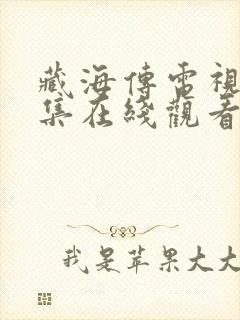 藏海傳電視
集在綫觀看
我是苹果大大